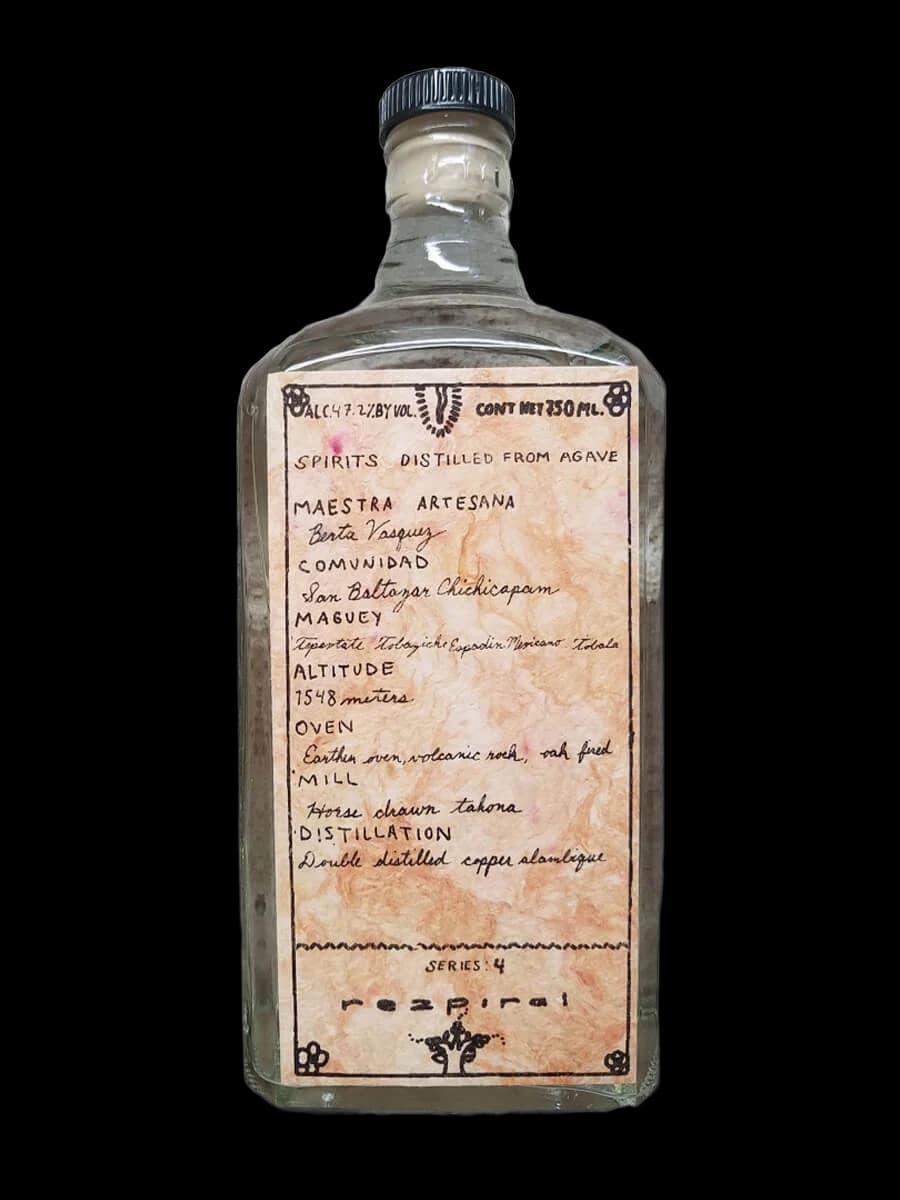 ALC.47.2%BY VOL. CONT NET 750 ML.
SPIRITS DISTILLED FROM AGAVE
MAESTRA ARTESANA
Berta Vasquez
COMUNIDAD
San Baltazar Chichicapam
MAGUEY
Tepextate Tobaziche Espadin Mexicano Tobala
ALTITUDE
1548 meters
OVEN
Earthen oven, volcanic rock, oak fired
MILL
Horse drawn tahona
DISTILLATION
Double distilled copper alambique
SERIES: 4
rezpiral